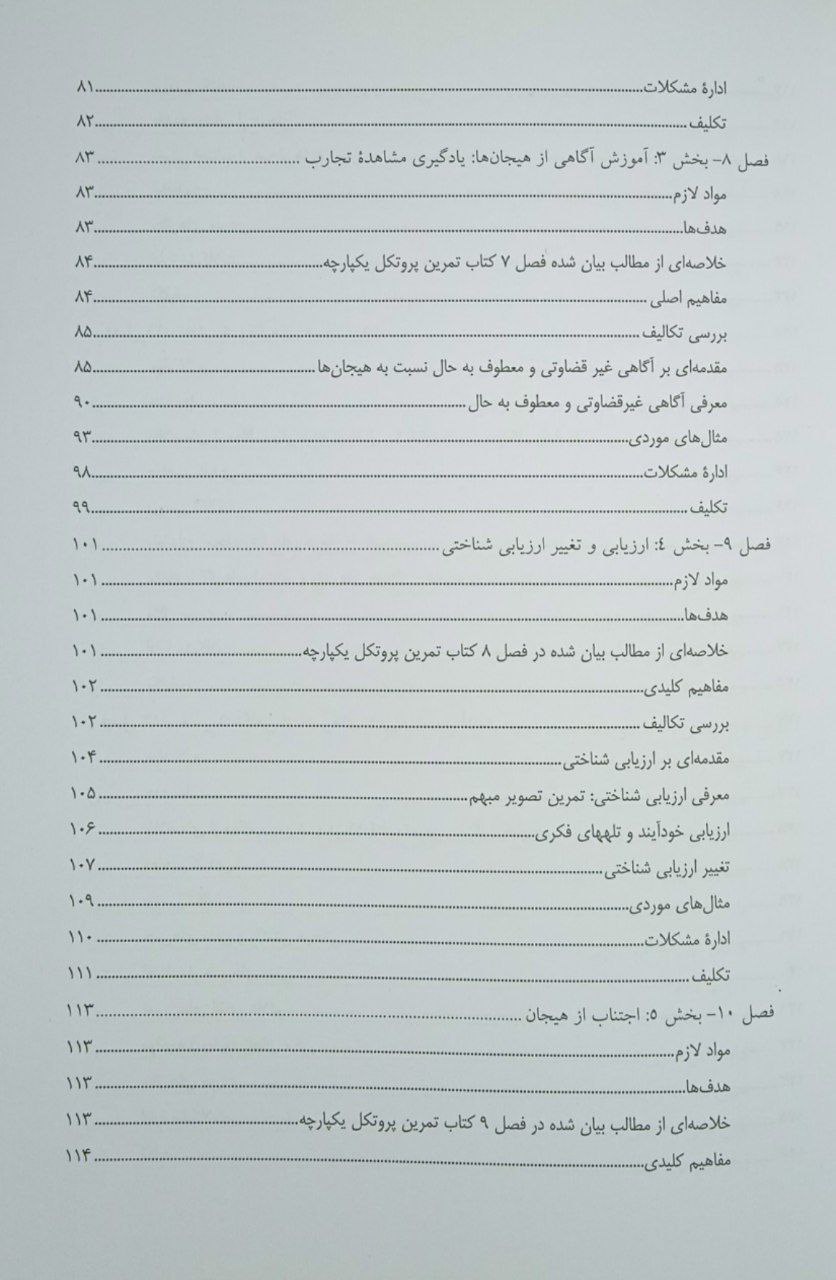 ادارهٔ مشکلات........................................۸۱
تکلیف........................................۸۲
فصل ۸- بخش ۳: آموزش آگاهی از هیجان‌ها: یادگیری مشاهدهٔ تجارب ........................................ ۸۳
مواد لازم........................................۸۳
هدف‌ها........................................۸۳
خلاصه‌ای از مطالب بیان شده فصل ۷ کتاب تمرین پروتکل یکپارچه........................................۸۴
مفاهیم اصلی ........................................۸۴
بررسی تکالیف ........................................۸۵
مقدمه‌ای بر آگاهی غیر قضاوتی و معطوف به حال نسبت به هیجان‌ها........................................۸۵
معرفی آگاهی غیرقضاوتی و معطوف به حال ........................................۹۰
مثال‌های موردی........................................۹۳
ادارهٔ مشکلات........................................۹۸
تکلیف ........................................۹۹
فصل ۹- بخش ٤: ارزیابی و تغییر ارزیابی شناختی ........................................۱۰۱
مواد لازم........................................ ۱۰۱
هدف‌ها........................................ ۱۰۱
خلاصه‌ای از مطالب بیان شده در فصل ۸ کتاب تمرین پروتکل یکپارچه........................................ ۱۰۱
مفاهیم کلیدی........................................ ۱۰۲
بررسی تکالیف ........................................ ۱۰۲
مقدمه‌ای بر ارزیابی شناختی........................................ ۱۰۴
معرفی ارزیابی شناختی: تمرین تصویر مبهم ........................................ ۱۰۵
ارزیابی خودآیند و تلههای فکری........................................ ۱۰۶
تغییر ارزیابی شناختی ........................................ ۱۰۷
مثال‌های موردی........................................ ۱۰۹
ادارهٔ مشکلات........................................ ۱۱۰
تکلیف ........................................ ۱۱۱
فصل ۱۰- بخش ٥: اجتناب از هیجان ........................................۱۱۳
مواد لازم........................................ ۱۱۳
هدف‌ها........................................ ۱۱۳
خلاصه‌ای از مطالب بیان شده در فصل ۹ کتاب تمرین پروتکل یکپارچه........................................ ۱۱۳
مفاهیم کلیدی........................................ ۱۱۴